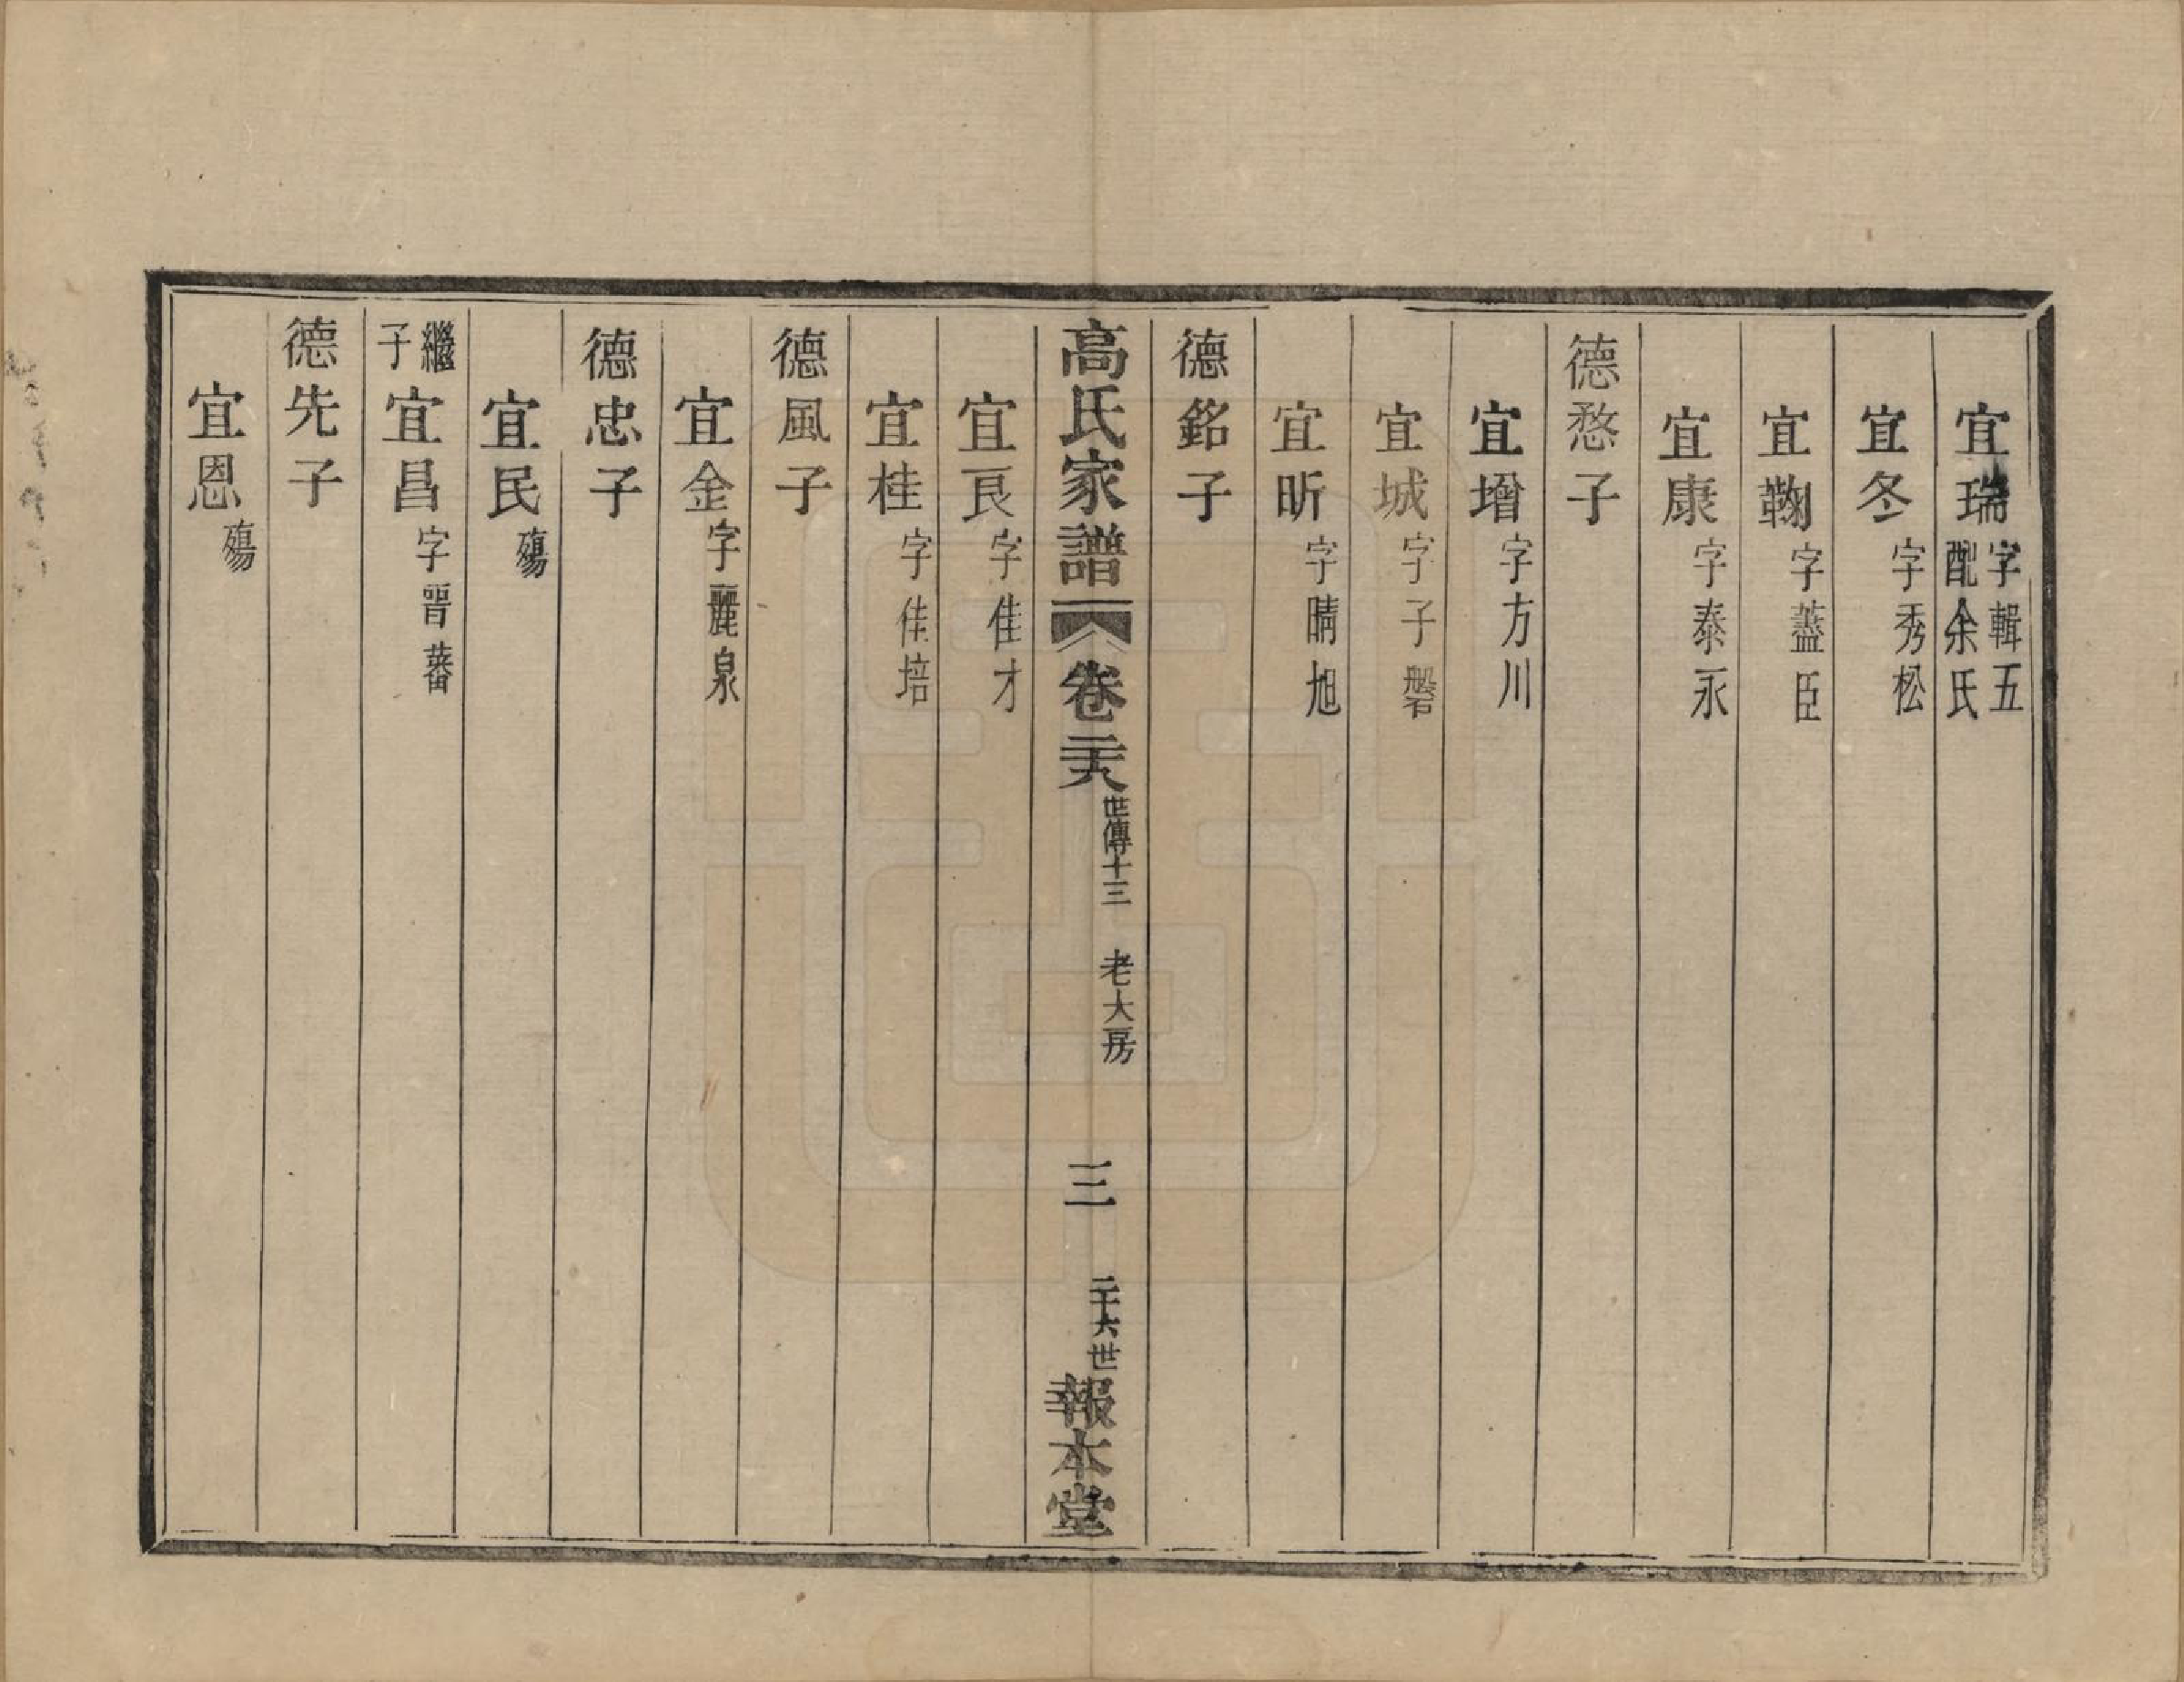 宜瑞字輯五
配余氏
宜冬字秀松
宜鞠字藎臣
宜康字泰永
德愁子
宜增字方川
宜城字子磐
宜昕字晴旭
德銘子
高氏家譜 卷二十八 世傳十三 老大房 三 二十六世 報本堂
宜良字佳才
宜桂字佳培
德風子
宜金字麗泉
德忠子
宜民殤
繼子宜昌字晋蕃
德先子
宜恩殤